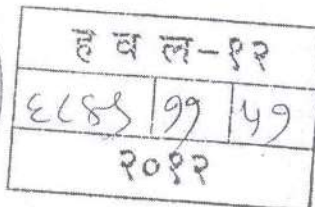 ह व ल-१२
६८४९ ११ ५१
२०१२